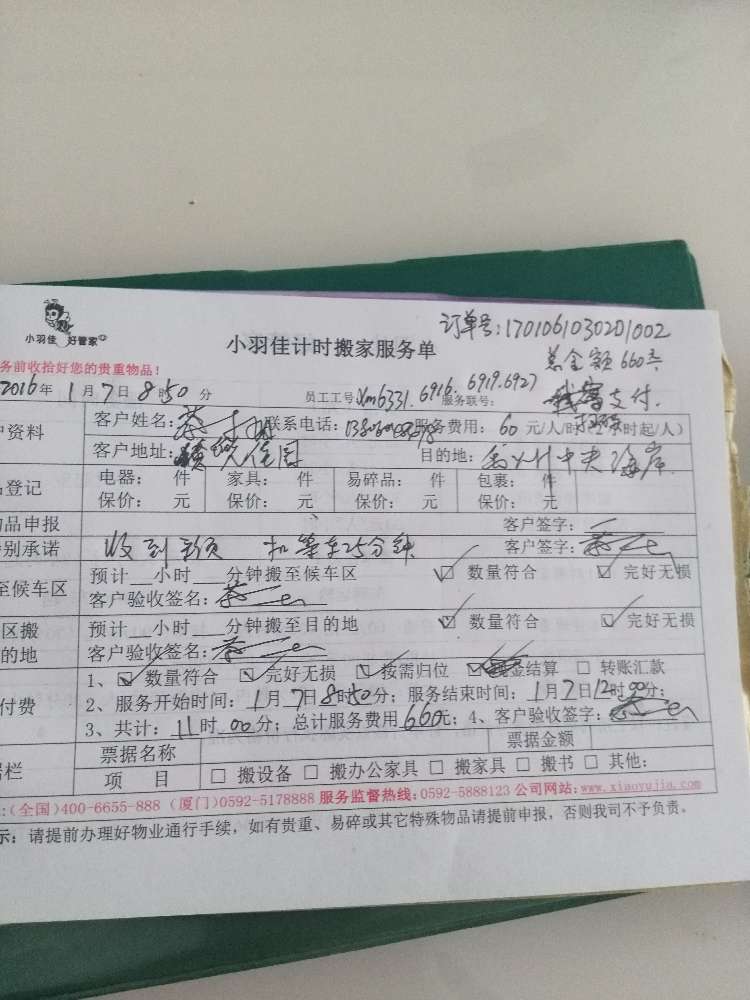 小羽佳 好管家
小羽佳计时搬家服务单
订单号:1701061030201002
总金额660元
务前收拾好您的贵重物品!
2016年1月7日8时50分 员工工号:Xm6331.6916.6919.6927 服务联号: 支付.
户资料 客户姓名: 联系电话: 服务费用:60元/人/时(2小时起/人)
客户地址: 目的地: 中央海岸
品登记 电器: 件 家具: 件 易碎品: 件 包裹: 件
保价: 元 保价: 元 保价: 元 保价: 元
物品申报 客户签字:
特别承诺 收到 扣等车25分钟 客户签字:
至候车区 预计__小时___分钟搬至候车区 ☑ 数量符合 ☑ 完好无损
客户验收签名:
区搬 预计__小时___分钟搬至目的地 ☑ 数量符合 ☑ 完好无损
的地 客户验收签名:
付费 1、☑ 数量符合 ☑ 完好无损 ☑ 按需归位 ☑ 现金结算 □ 转账汇款
2、服务开始时间:1月7日8时50分;服务结束时间:1月7日12时00分;
3、共计:11时00分;总计服务费用660元;4、客户验收签字:
据栏 票据名称 票据金额
项 目 □ 搬设备 □ 搬办公家具 □ 搬家具 □ 搬书 □ 其他:
:(全国)400-6655-888 (厦门)0592-5178888 服务监督热线:0592-5888123 公司网站:www.xiaoyujia.com
示:请提前办理好物业通行手续,如有贵重、易碎或其它特殊物品请提前申报,否则我司不予负责。